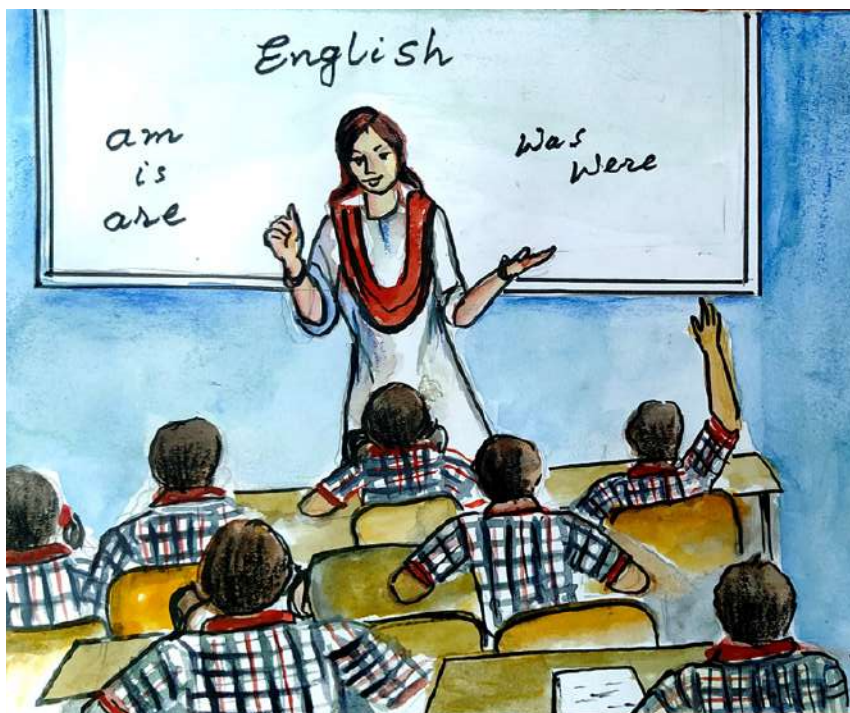 English
am
is
are
was
were